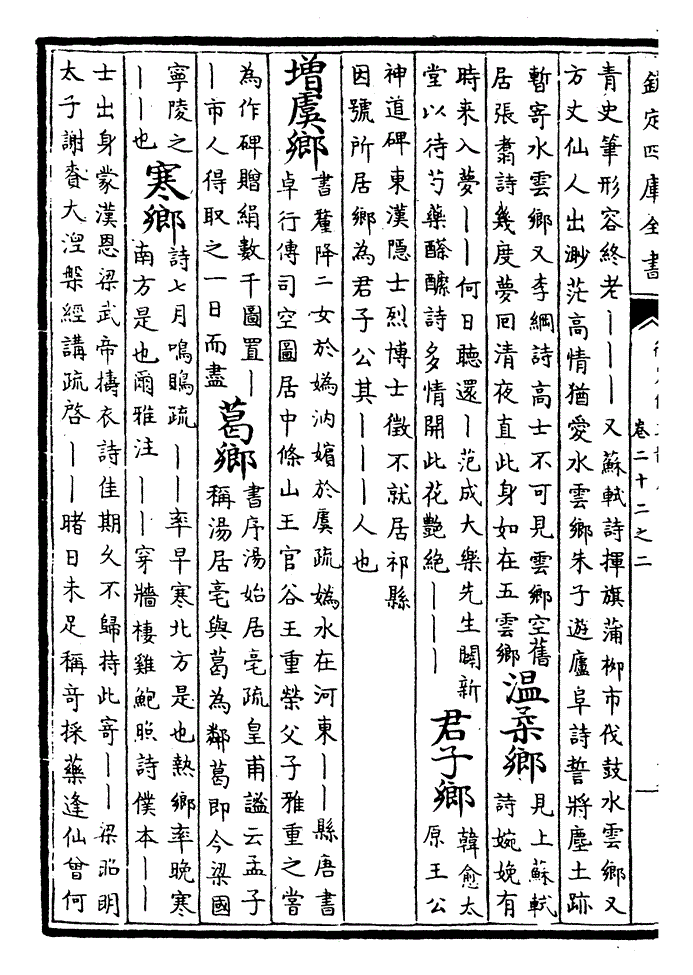 欽定四庫全書
卷二十二之二
青史筆形容終老｜｜｜又蘇軾詩揮旗蒲柳市伐鼓水雲鄉又
方丈仙人出渺茫高情猶愛水雲鄉朱子遊廬阜詩誓將塵土跡
暫寄水雲鄉又李綱詩高士不可見雲鄉空舊
居張翥詩幾度夢回清夜直此身如在五雲鄉
溫柔鄉
見上蘇軾
詩婉娩有
時来入夢｜｜何日聽還｜范成大樂先生闢新
堂以待芍藥酴醾詩多情開此花艷絶｜｜｜
君子鄉
韓愈太
原王公
神道碑東漢隠士烈博士徵不就居祁縣
因號所居鄉為君子公其｜｜｜人也
增虞鄉
書釐降二女於媯汭嬪於虞疏媯水在河東｜｜縣唐書
卓行傳司空圖居中條山王官谷王重榮父子雅重之嘗
為作碑贈絹數千圖置｜
｜市人得取之一日而盡
葛鄉
書序湯始居亳疏皇甫謐云孟子
稱湯居亳與葛為鄰葛即今梁國
寧陵之
｜｜也
寒鄉
詩七月鳴鵙疏｜｜率早寒北方是也熱鄉率晚寒
南方是也爾雅注｜｜穿牆棲雞鮑照詩僕本｜｜
士出身蒙漢恩梁武帝擣衣詩佳期久不歸持此寄｜｜梁昭明
太子謝賚大涅槃經講疏啓｜｜睹日未足稱竒採藥逢仙曾何